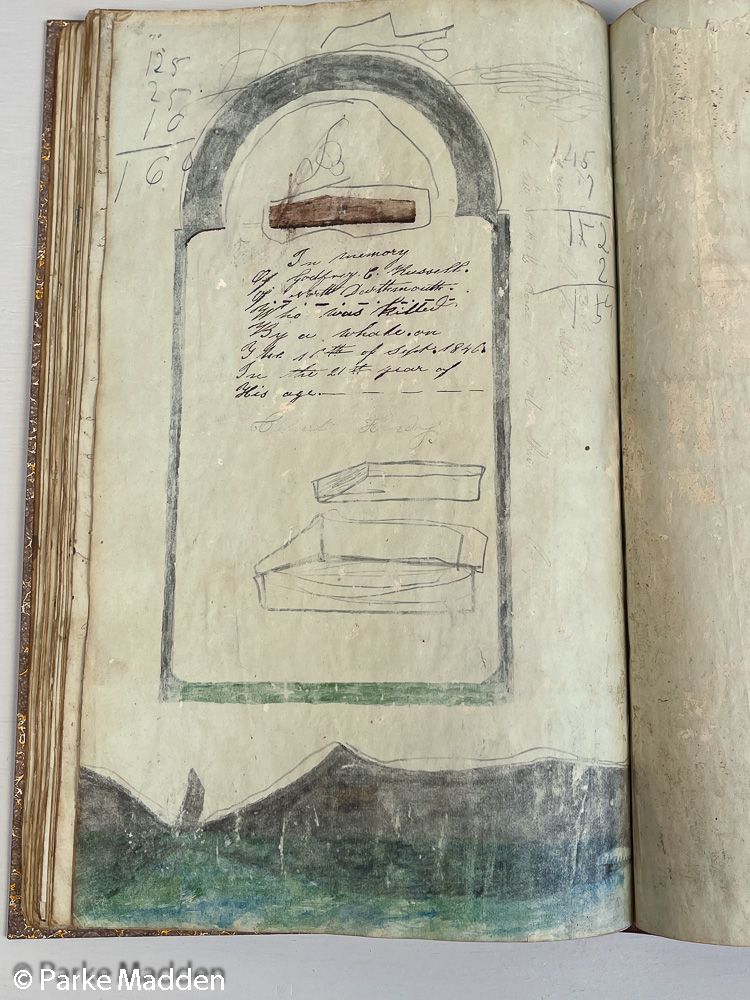 125
25
10
160
145
7
152
2
15
In memory
Of Godfrey. C. Russell.
of North Dartmouth.
Who was killed.
By a whale. on
The 16th of Sept. 1846.
In the 21st year of
His age.
© Parke Madden